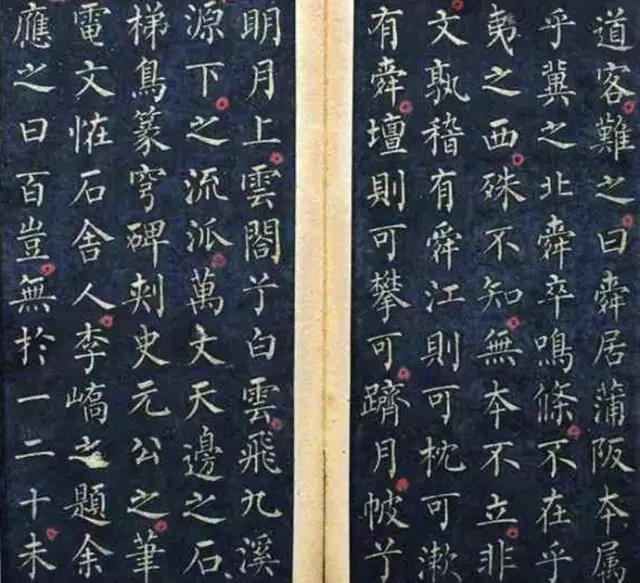 道客難之曰舜居蒲阪本属
乎冀之北舜卒鳴條不在乎
夷之西殊不知無本不立非
文孰稽有舜江則可枕可漱
有舜壇則可攀可躋月帔兮
明月上雲閤兮白雲飛九溪
源下之流派萬丈天邊之石
梯鳥篆穹碑刾史元公之筆
電文恠石舍人李嶠之題余
應之曰百豈無於一二十未